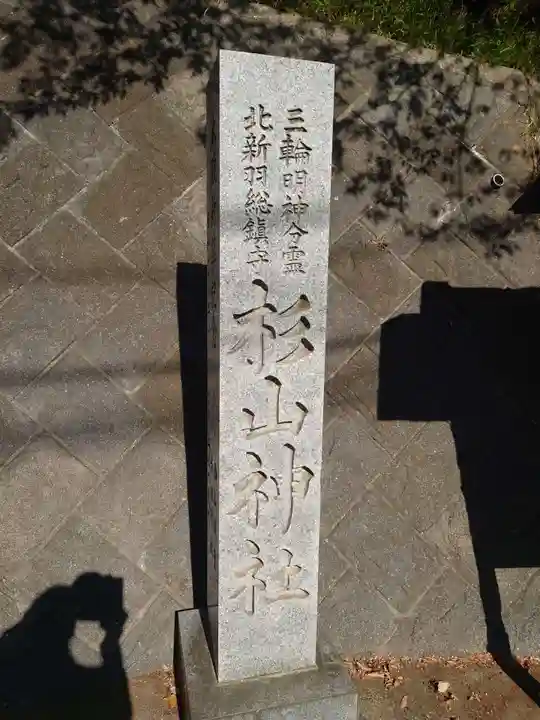 三輪明神分霊
北新羽総鎮守
杉山神社